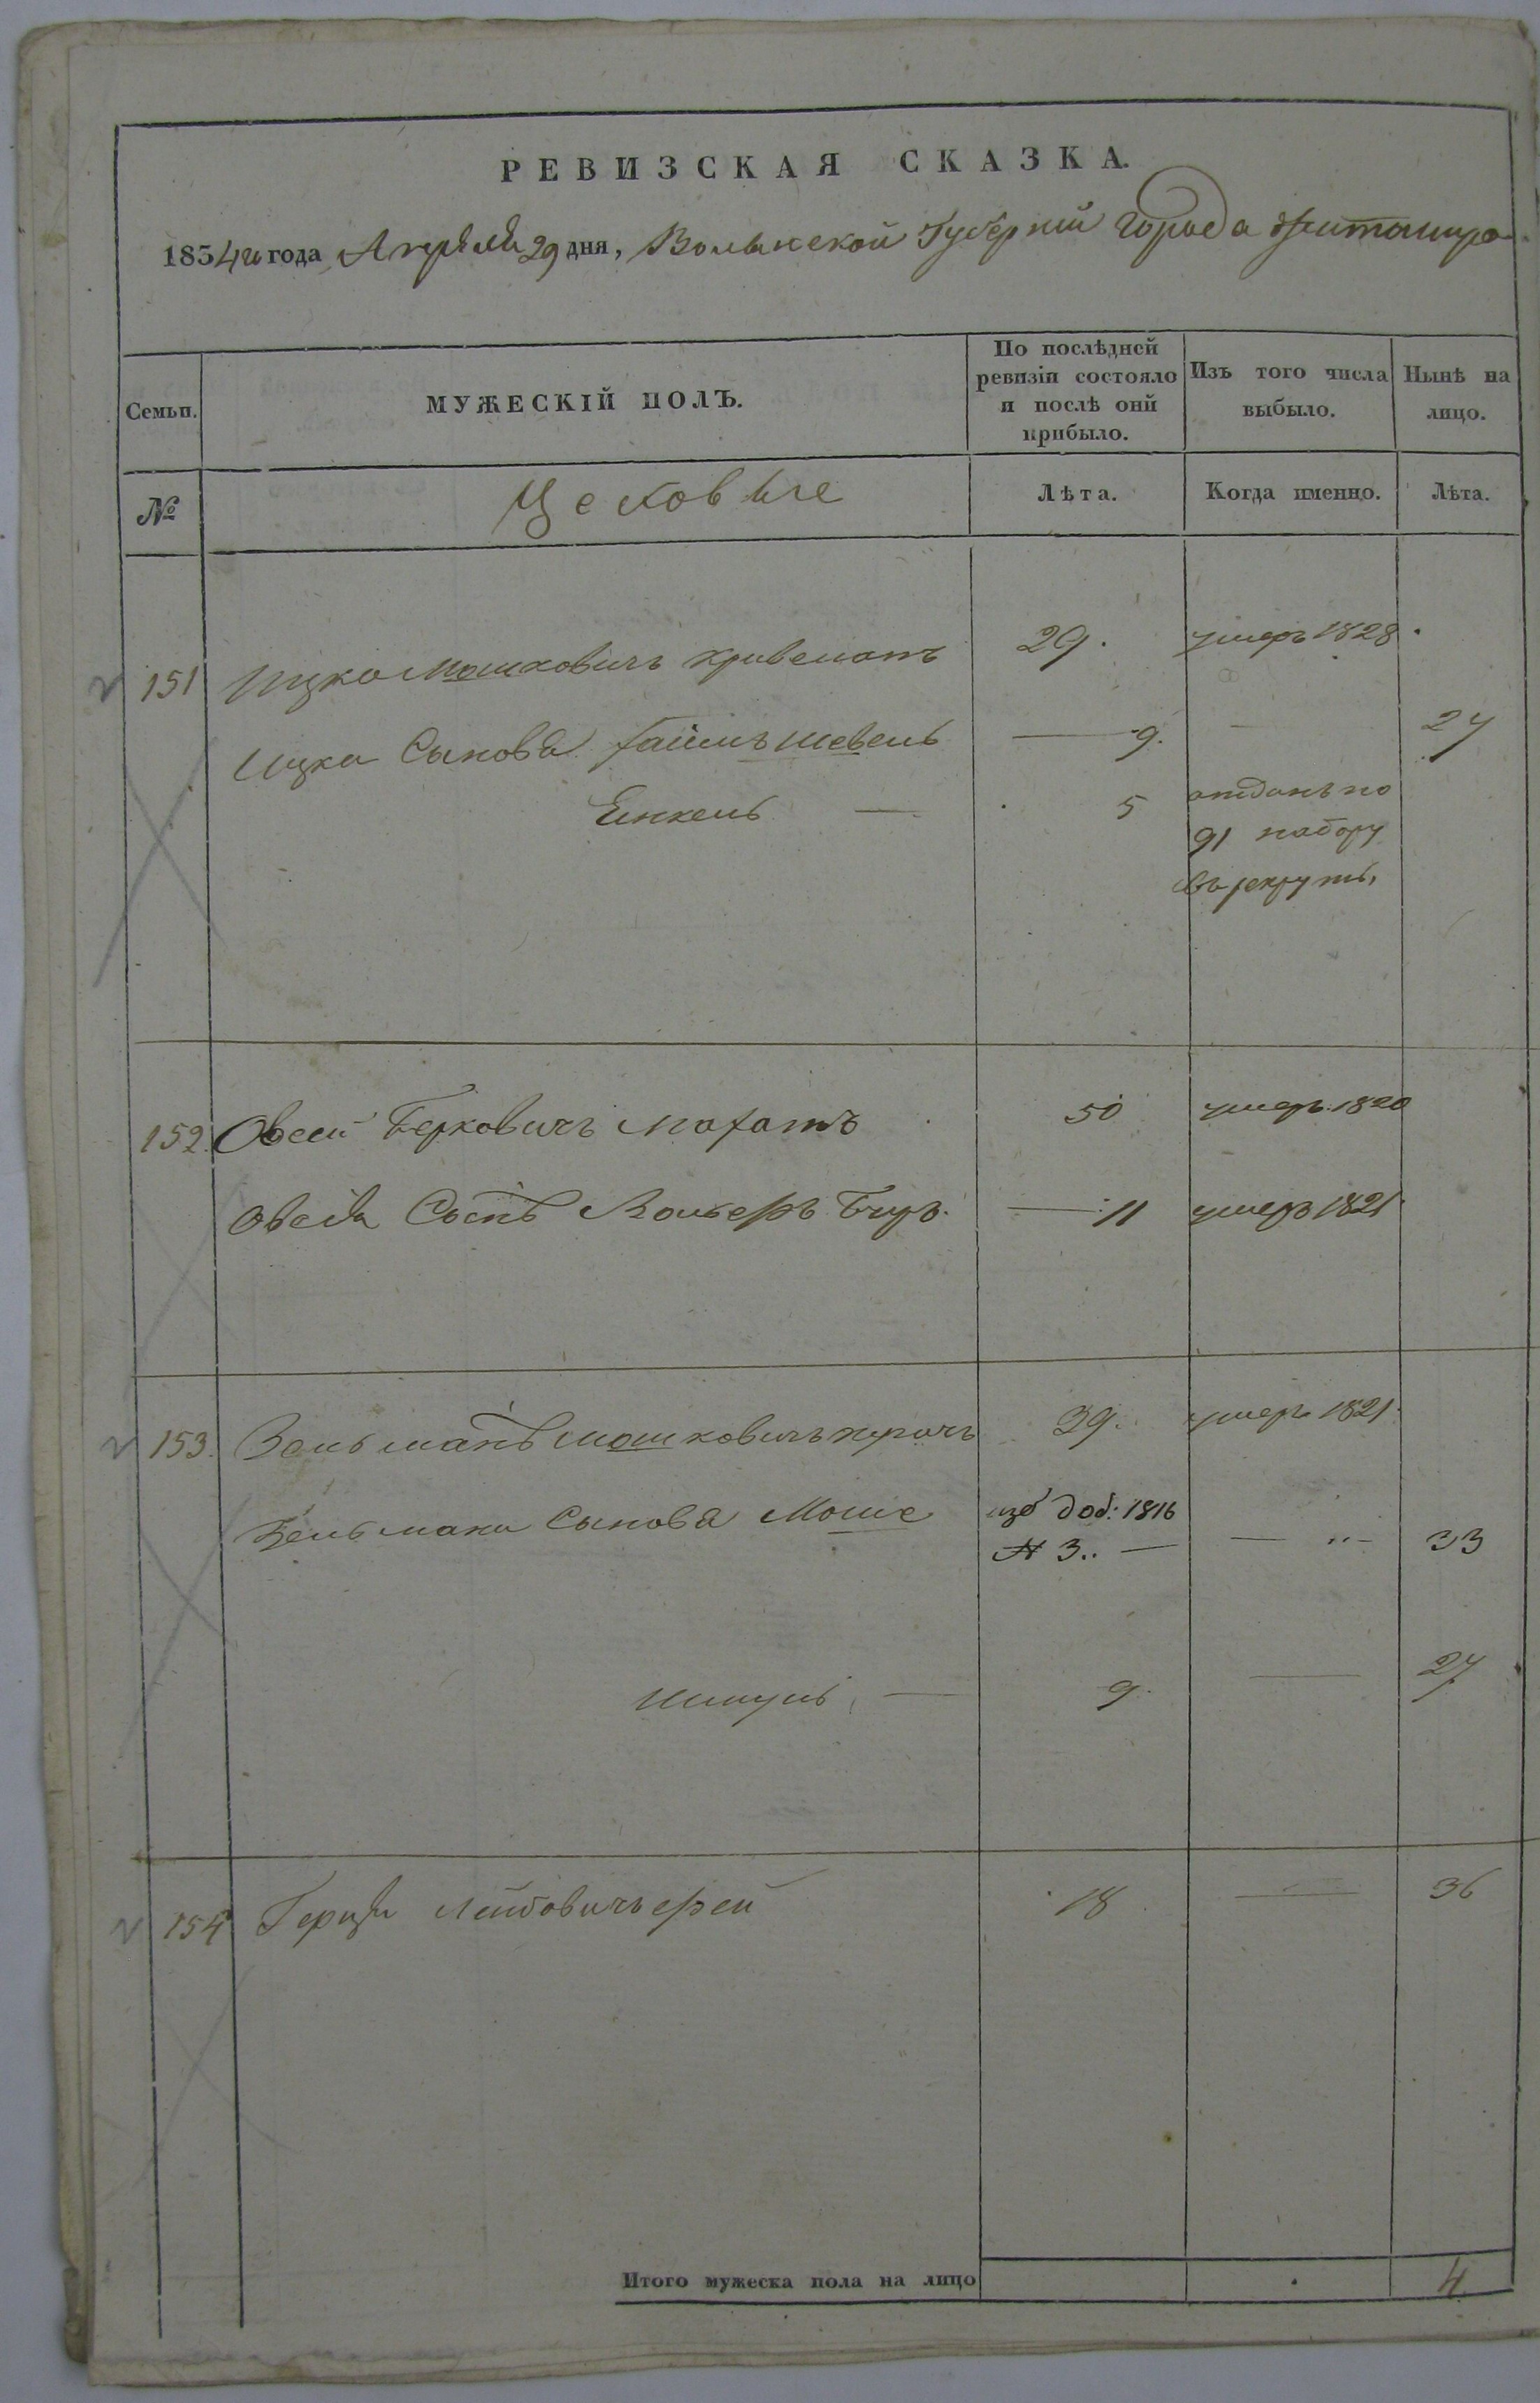 РЕВИЗСКАЯ СКАЗКА.
1834го года Апреля 29 дня, Волынской Губернии Города Житомира
Семьи. МУЖЕСКІЙ ПОЛЪ. По послѣдней ревизіи состояло и послѣ оній прибыло. Изъ того числа выбыло. Нынѣ на лицо.
№ Цеховые Лѣта. Когда именно. Лѣта.
151 Ицко Мошковичъ 29. умеръ 1828
Ицка Сынова Хаимъ Шевель 9. 27
Еинкель 5 отданъ по
91 набору
въ рекруты,
152. Овсей Берковичъ 50 умеръ 1820
Овсея Сынъ Волько 11 умеръ 1821
153. Зельманъ Мошковичъ 39. умеръ 1821
Зельмана Сынова Моше изъ доб: 1816
№ 3.. 33
9. 27
154 Герцъ Лейбовичъ 18 36
Итого мужеска пола на лицо 4